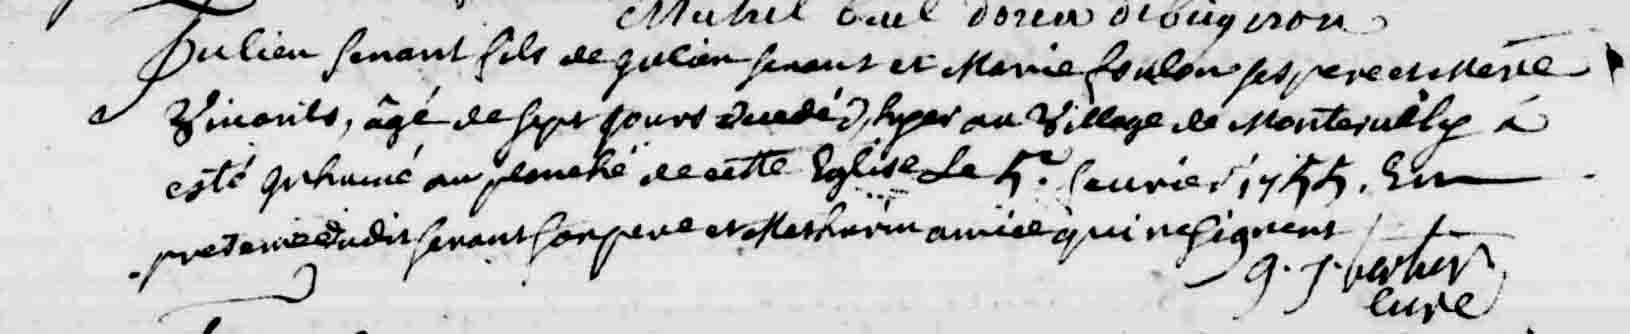 Michel
Julien fenant fils de julien fenant et Marie foulon ses pere et Mere
Vivants, âgé de sept jours decedé hyer au Village de Monterully a
esté jnhumé au planché de cette Eglise Le 5e. feuvrier 1755. En
presence dudit fenant son pere et Mathurin amice qui ne signent
g. J.
curé